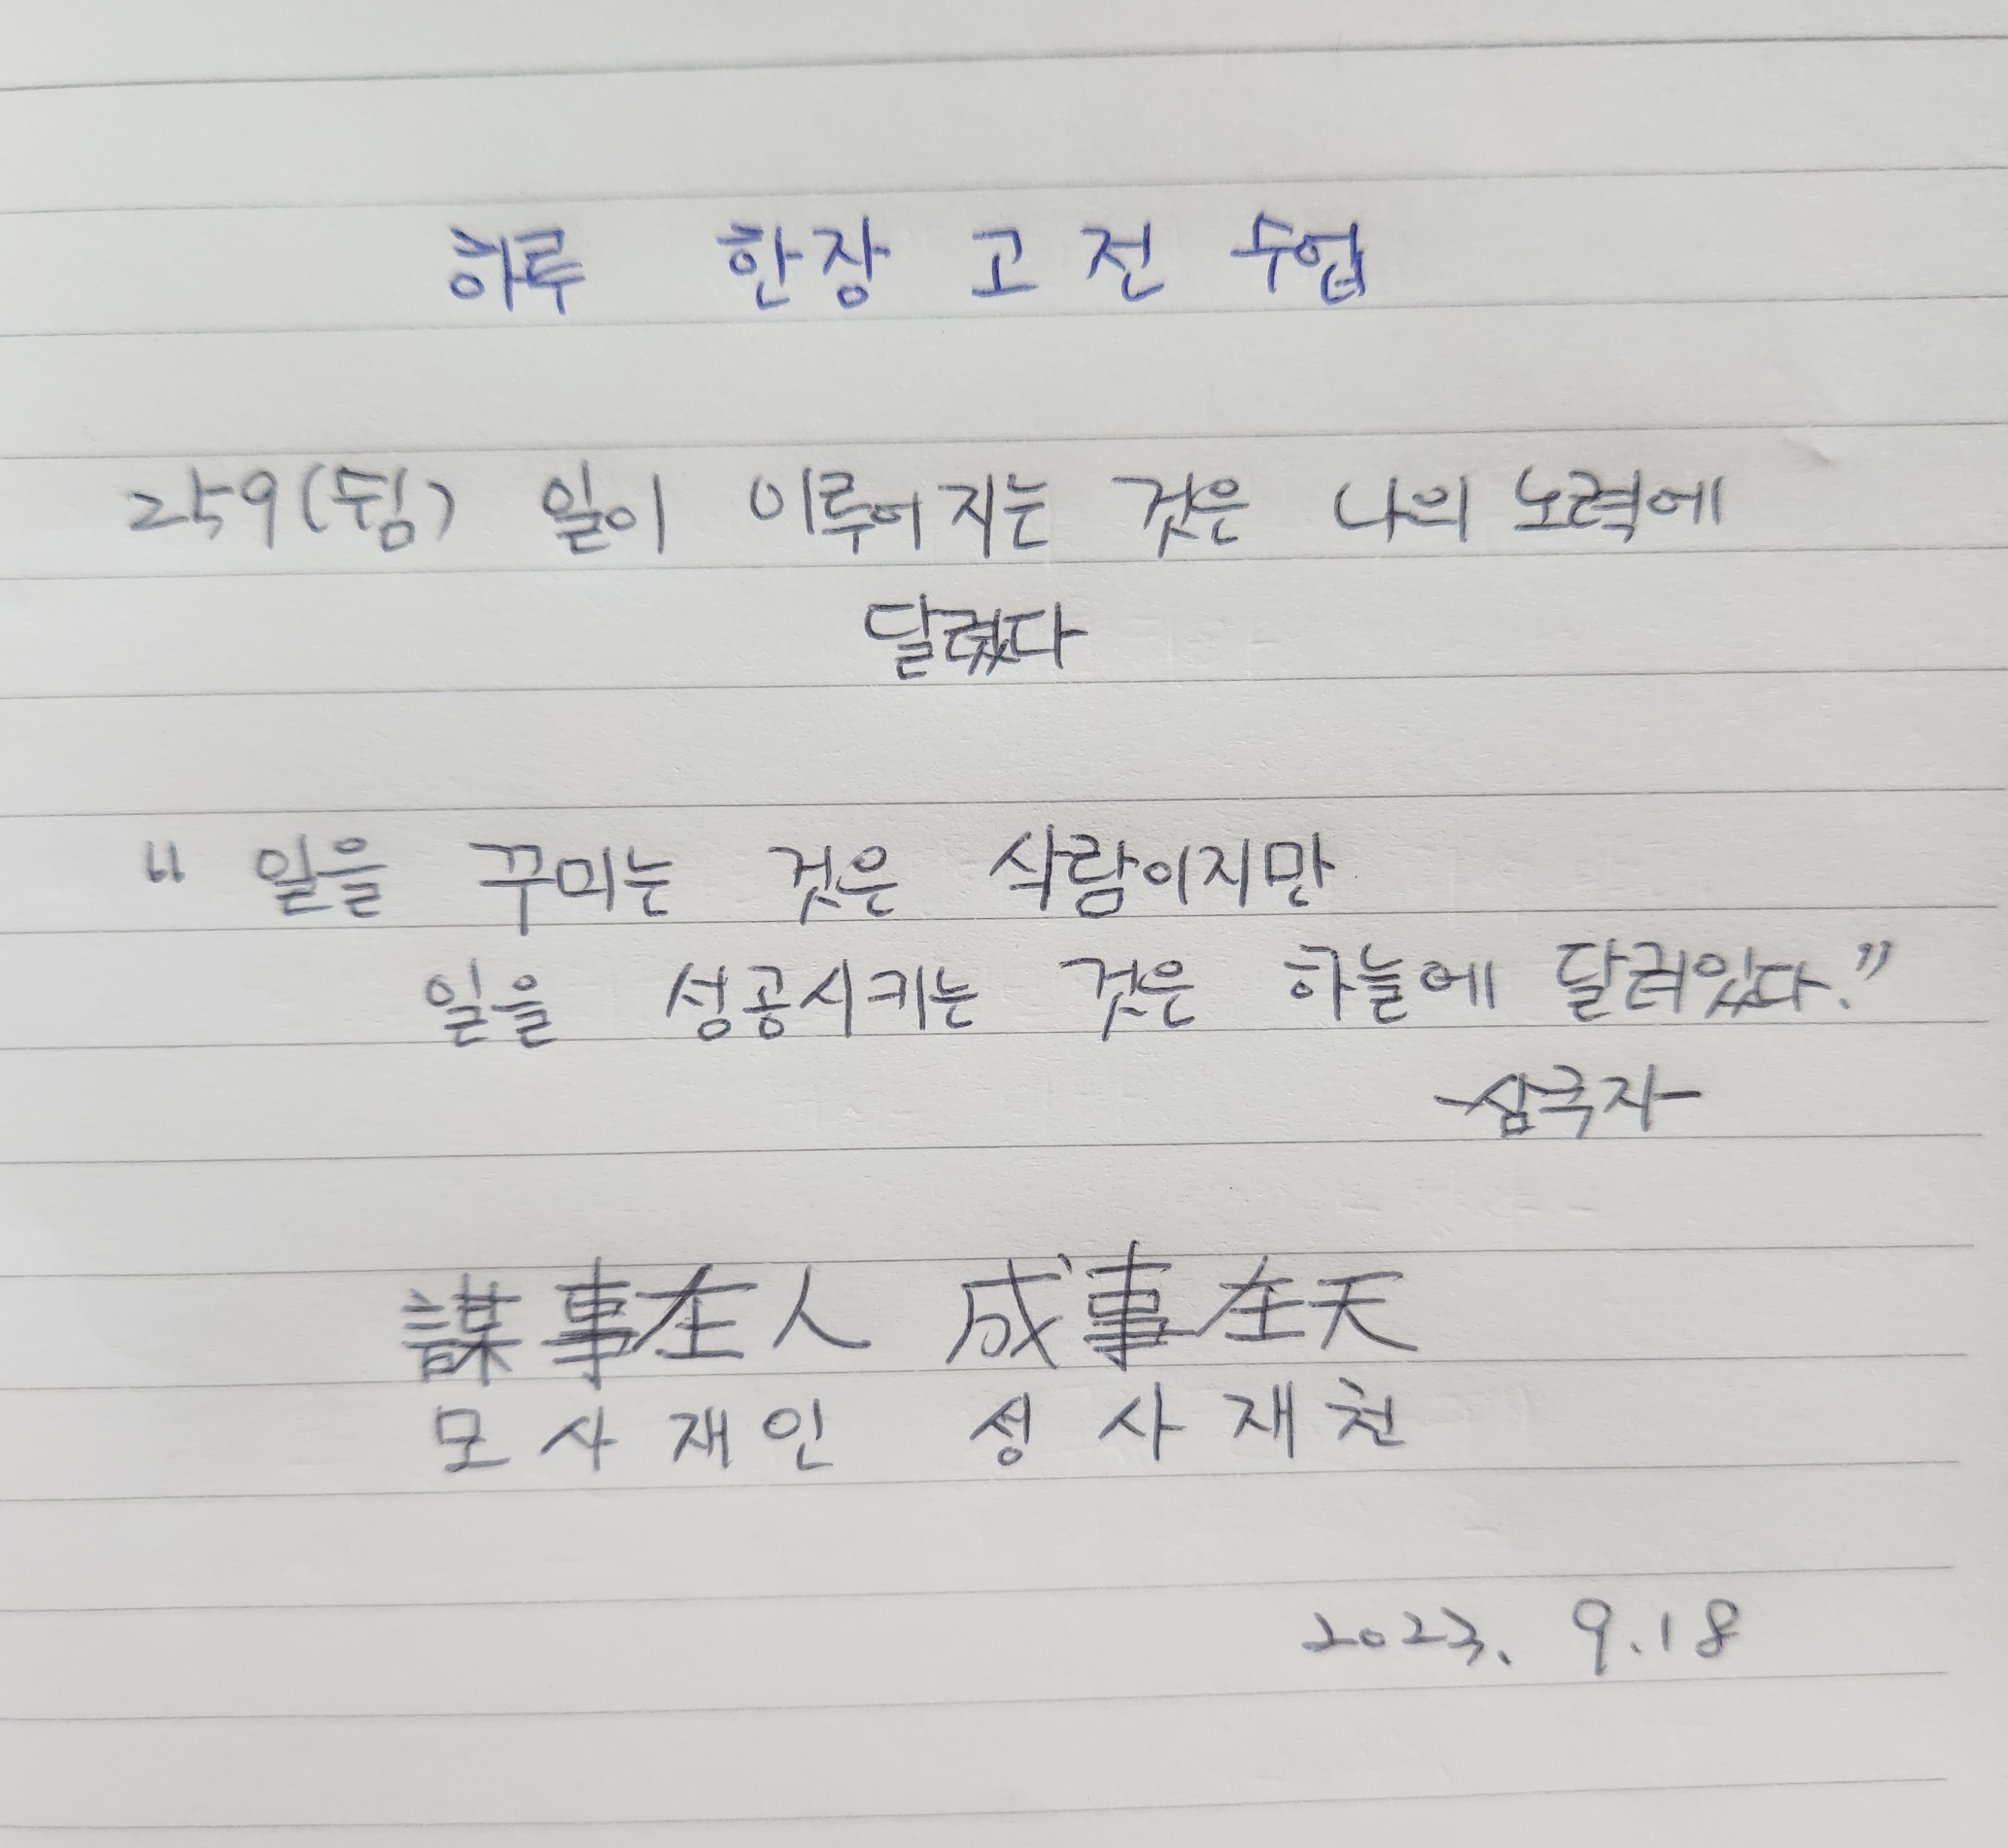 하루 한장 고전 수업
259(쉼) 일이 이루어지는 것은 나의 노력에
달렸다
“ 일을 꾸미는 것은 사람이지만
일을 성공시키는 것은 하늘에 달려있다.”
-삼국지-
謀事在人 成事在天
모사재인 성사재천
2023. 9.18